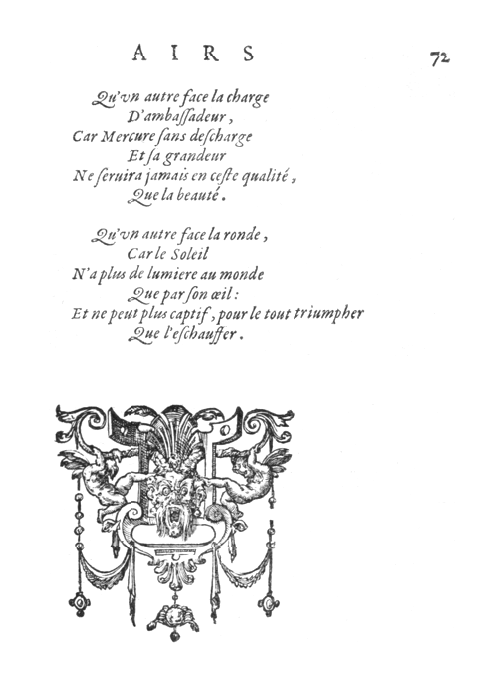 AIRS 72
Qu'vn autre face la charge
D'ambaſſadeur,
Car Mercure ſans deſcharge
Et ſa grandeur
Ne ſeruira jamais en ceſte qualité,
Que la beauté.
Qu'vn autre face la ronde,
Car le Soleil
N'a plus de lumiere au monde
Que par ſon œil:
Et ne peut plus captif, pour le tout triumpher
Que l'eſchauffer.